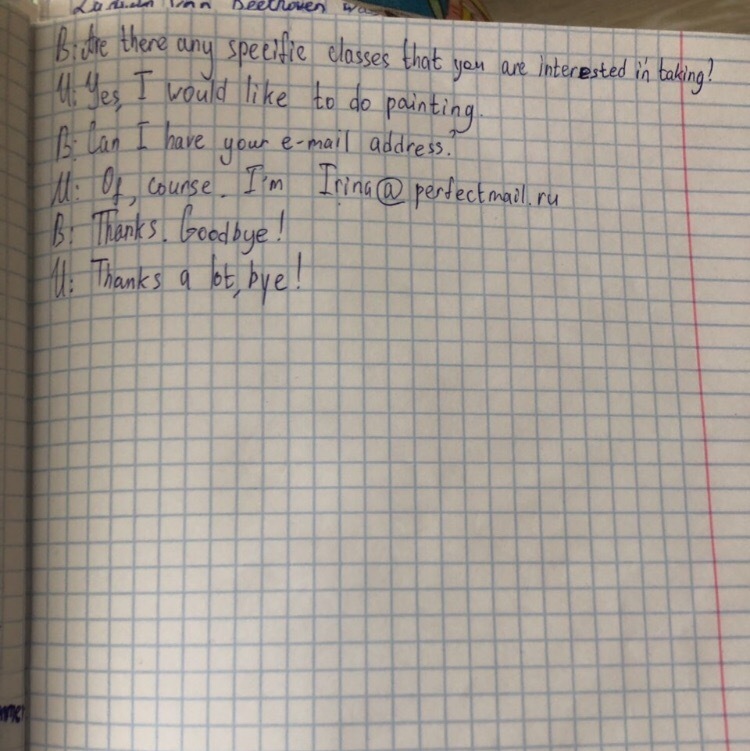 Beethoven was
B: Are there any specific classes that you are interested in taking?
U: Yes, I would like to do painting.
B: Can I have your e-mail address?
U: Of, counse. I'm Irina@perfectmail.ru
B: Thanks. Goodbye!
U: Thanks a lot, bye!